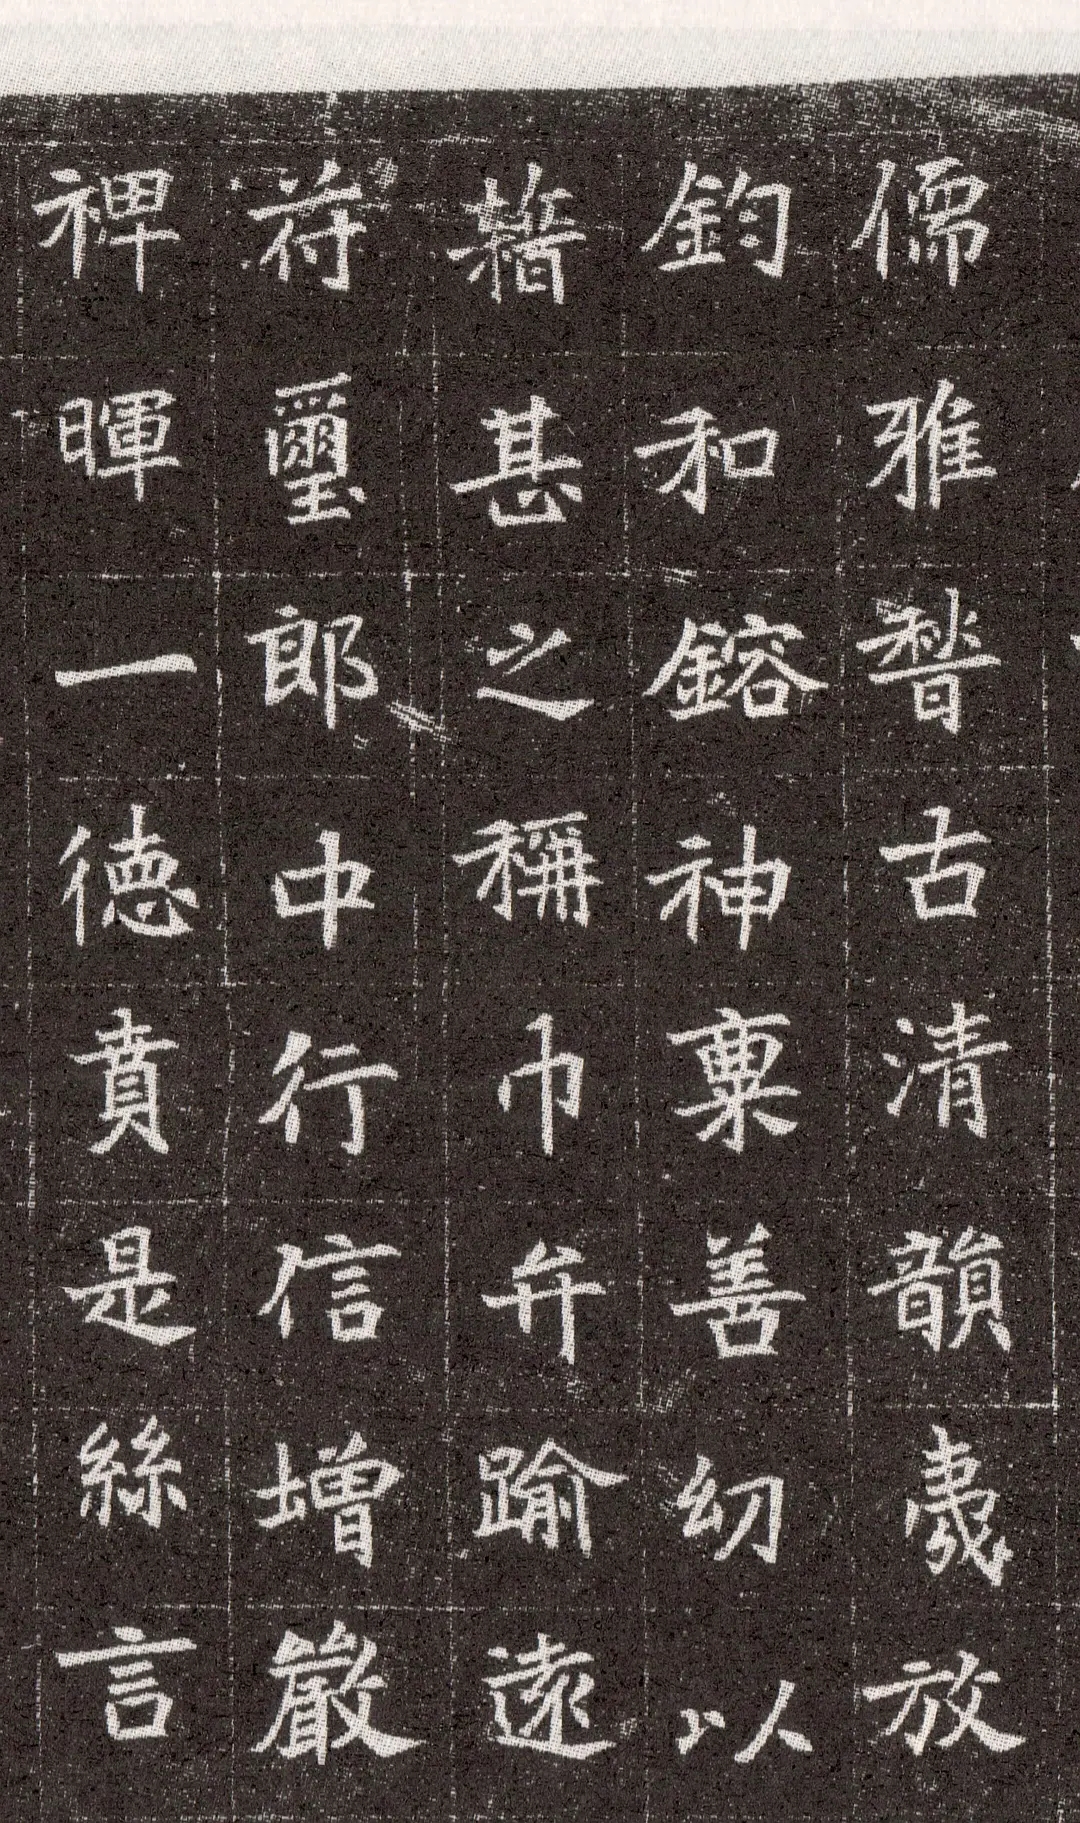 儒雅稽古清韻放
鈞和鎔神稟善幼以
藉甚之稱巾弁踰遠
符璽郎中行信增嚴
裨暉一德賁是絲言